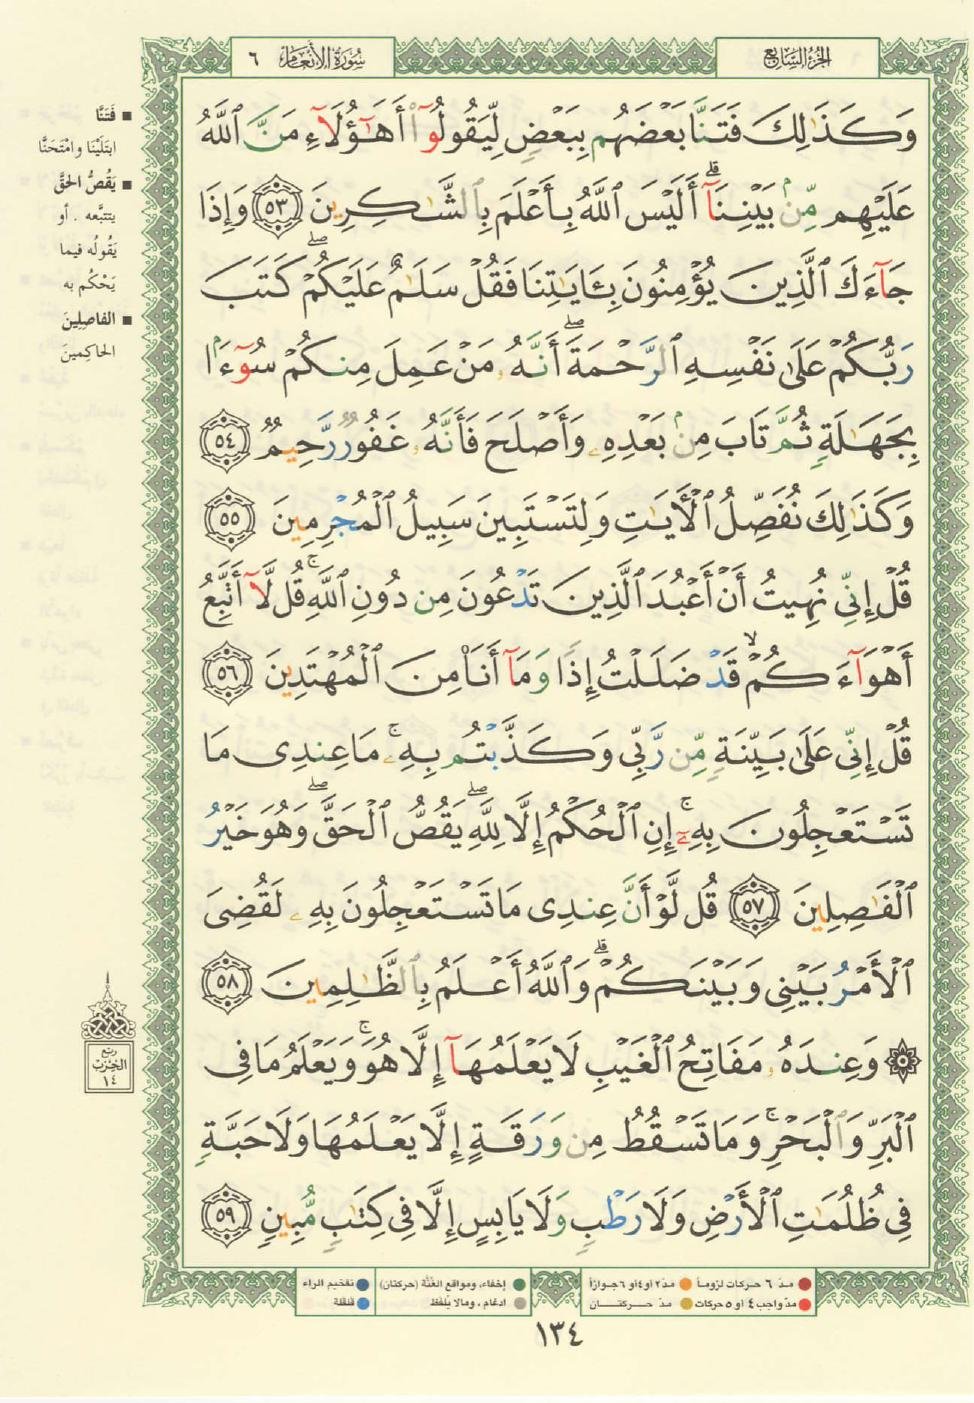 الجزء السابع
سورة الأنعام ٦
وَكَذَٰلِكَ فَتَنَّا بَعْضَهُم بِبَعْضٍ لِّيَقُولُوٓا۟ أَهَٰٓؤُلَآءِ مَنَّ ٱللَّهُ
عَلَيْهِم مِّنۢ بَيْنِنَآ ۗ أَلَيْسَ ٱللَّهُ بِأَعْلَمَ بِٱلشَّٰكِرِينَ ٥٣ وَإِذَا
جَآءَكَ ٱلَّذِينَ يُؤْمِنُونَ بِـَٔايَٰتِنَا فَقُلْ سَلَٰمٌ عَلَيْكُمْ ۖ كَتَبَ
رَبُّكُمْ عَلَىٰ نَفْسِهِ ٱلرَّحْمَةَ ۖ أَنَّهُۥ مَنْ عَمِلَ مِنكُمْ سُوٓءًۢا
بِجَهَٰلَةٍ ثُمَّ تَابَ مِنۢ بَعْدِهِۦ وَأَصْلَحَ فَأَنَّهُۥ غَفُورٌ رَّحِيمٌ ٥٤
وَكَذَٰلِكَ نُفَصِّلُ ٱلْأَيَٰتِ وَلِتَسْتَبِينَ سَبِيلُ ٱلْمُجْرِمِينَ ٥٥
قُلْ إِنِّى نُهِيتُ أَنْ أَعْبُدَ ٱلَّذِينَ تَدْعُونَ مِن دُونِ ٱللَّهِ ۚ قُل لَّآ أَتَّبِعُ
أَهْوَآءَكُمْ ۙ قَدْ ضَلَلْتُ إِذًا وَمَآ أَنَا۠ مِنَ ٱلْمُهْتَدِينَ ٥٦
قُلْ إِنِّى عَلَىٰ بَيِّنَةٍ مِّن رَّبِّى وَكَذَّبْتُم بِهِۦ ۚ مَا عِندِى مَا
تَسْتَعْجِلُونَ بِهِۦٓ ۚ إِنِ ٱلْحُكْمُ إِلَّا لِلَّهِ ۖ يَقُصُّ ٱلْحَقَّ ۖ وَهُوَ خَيْرُ
ٱلْفَٰصِلِينَ ٥٧ قُل لَّوْ أَنَّ عِندِى مَا تَسْتَعْجِلُونَ بِهِۦ لَقُضِىَ
ٱلْأَمْرُ بَيْنِى وَبَيْنَكُمْ ۗ وَٱللَّهُ أَعْلَمُ بِٱلظَّٰلِمِينَ ٥٨
۞ وَعِندَهُۥ مَفَاتِحُ ٱلْغَيْبِ لَا يَعْلَمُهَآ إِلَّا هُوَ ۚ وَيَعْلَمُ مَا فِى
ٱلْبَرِّ وَٱلْبَحْرِ ۚ وَمَا تَسْقُطُ مِن وَرَقَةٍ إِلَّا يَعْلَمُهَا وَلَا حَبَّةٍ
فِى ظُلُمَٰتِ ٱلْأَرْضِ وَلَا رَطْبٍ وَلَا يَابِسٍ إِلَّا فِى كِتَٰبٍ مُّبِينٍ ٥٩
■ فَتَنَّا
ابتَلَيْنا وامْتَحنَّا
■ يَقُصُّ الحَقَّ
يتتبَّعه . أو
يَقُولُه فيما
يَحْكُم به
■ الفاصِلِينَ
الحاكِمينَ
ربع
الحزب
١٤
مدّ ٦ حركات لزوماً
مدّ ٢ أو ٤ أو ٦ جوازاً
إخفاء، ومواقع الغُنَّة (حركتان)
تفخيم الراء
مدّ واجب ٤ أو ٥ حركات
مدّ حركتان
ادغام، ومالا يُلفَظ
قلقلة
١٣٤